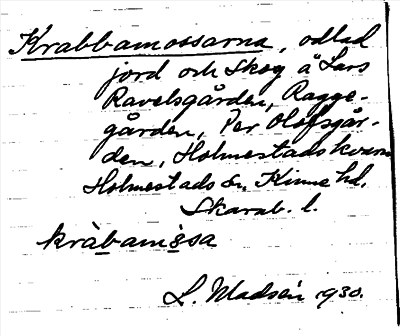 Krabbamossarna, odlad
jord och skog å Lars
Ravelsgården, Ragge-
gården, Per Olofsgår-
den, Holmestads kvarn
Holmestads sn, Kinne hd.
Skarab. l.
kràbamåsa
L. Madsén 1930.